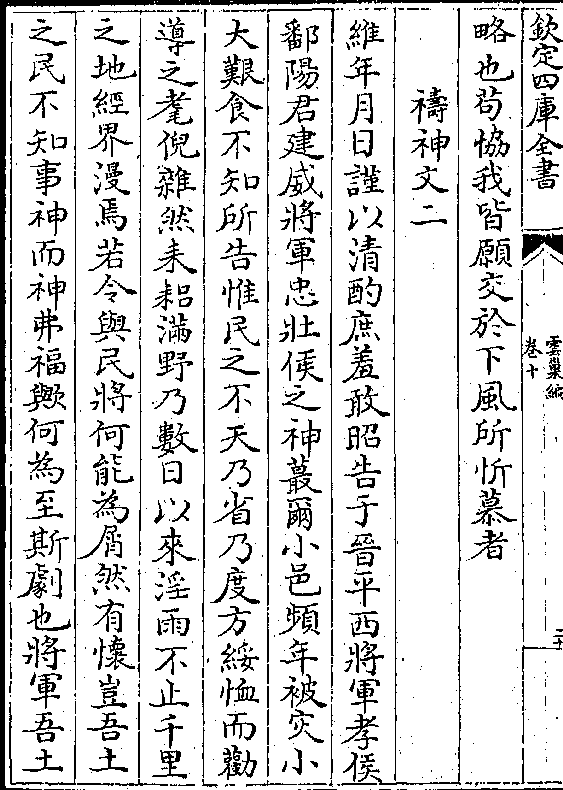 欽定四庫全書
雲巢編
卷十
略也苟恊我皆願交於下風所忻慕者
禱神文二
維年月日謹以清酌庶羞敢昭告于晉平西將軍孝侯
鄱陽君建威將軍忠壯侯之神蕞爾小邑頻年被灾小
大艱食不知所告惟民之不天乃省乃度方綏恤而勸
導之耄倪雜然耒耜滿野乃數日以來淫雨不止千里
之地經界漫焉若令與民將何能為屑然有懷豈吾土
之民不知事神而神弗福歟何為至斯劇也將軍吾土